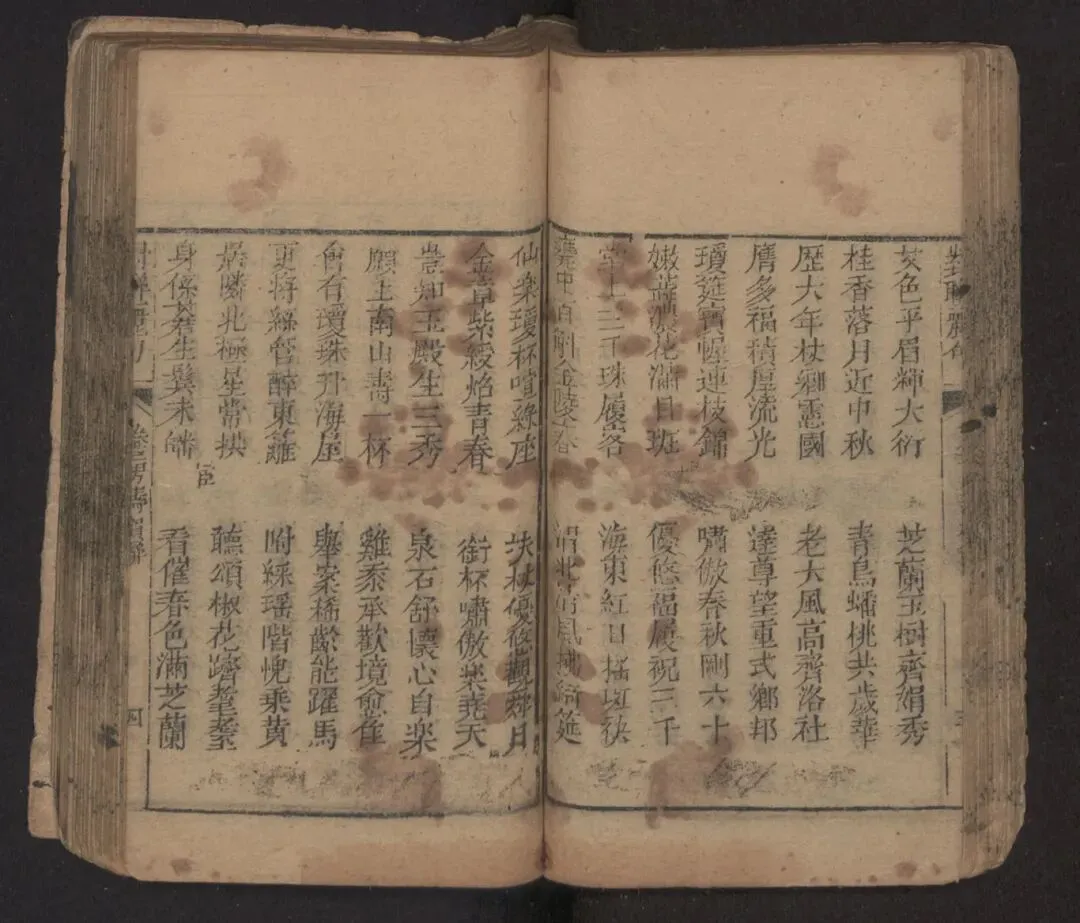 艾色平眉輝大衍
芝蘭玉樹齊娟秀
桂香落月近中秋
青鳥蟠桃共歲華
歴大年杖鄉憲國
老大風高齊洛社
膺多福積厚流光
達尊望重式鄉邦
瓊筵寳幄連枝錦
嘯傲春秋剛六十
嫩蕋濃花滿目班
優悠福履祝三千
堂上三千珠履客
海東紅日搖斑袂
甕中百斛金陵春
渭北 風 綺筵
仙樂瓊杯噴綠座
扶杖優悠觀舜日
金章紫綬焰青春
銜杯嘯傲樂堯天
豈知玉殿生三秀
泉石舒懷心自樂
願上南山壽一杯
雞黍承歡境愈佳
會有瓊珠升海屋
舉案稀齡能躍馬
更將絲管醉東籬
咐綵瑶階愧乘黄
隣北極星常拱
聽頌椒花躋耄耋
身係蒼生鬢未皤
看催春色滿芝蘭
四